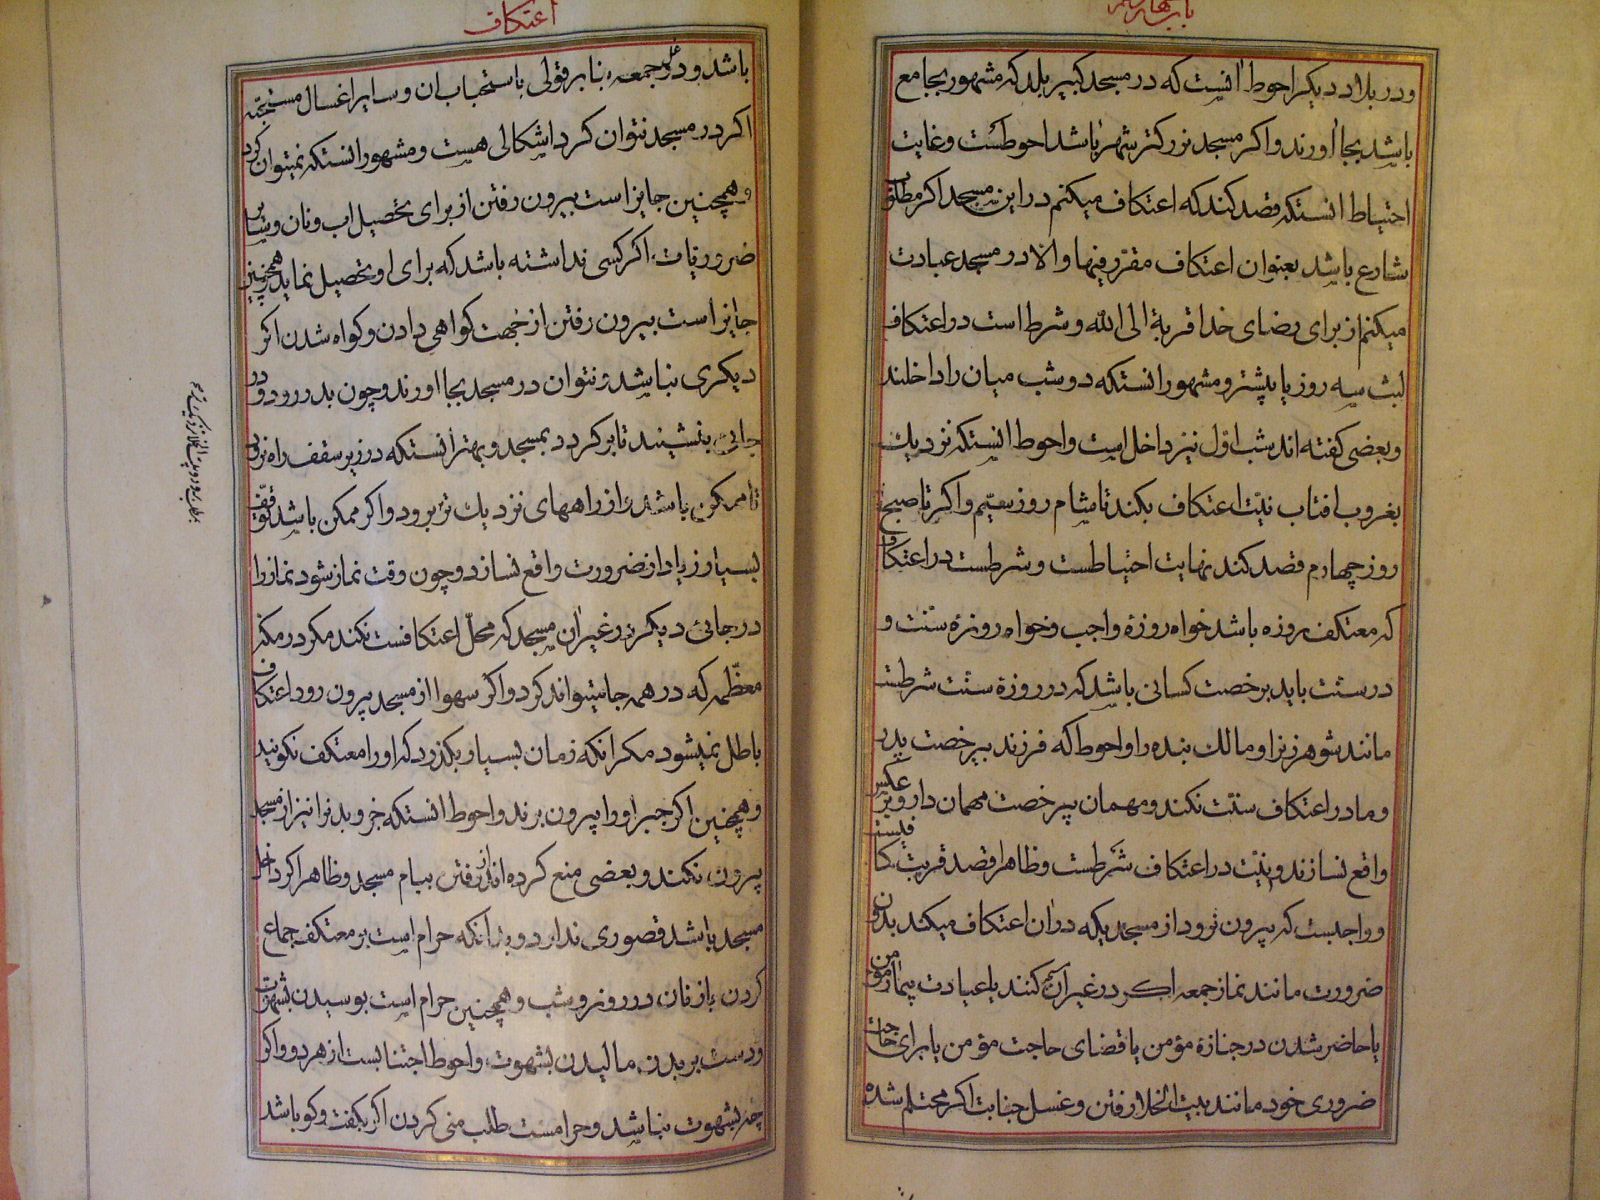 باب چهارم
و در بلاد دیکر احوط آنست که در مسجد کبیر بلد که مشهور بجامع
باشد بجا آورند و اکر مسجد بزرکتر شهر باشد احوطست و غایت
احتیاط انستکه قصد کند که اعتکاف میکنم در این مسجد اکر مطلوب
شارع باشد بعنوان اعتکاف مقرر فبها والا در مسجد عبادت
میکنم از برای رضای خدا قربة الی الله و شرط است در اعتکاف
لبث سه روز یا بیشتر و مشهور انستکه دو شب میان را داخلند
و بعضی کفته اند شب اول نیز داخل است و احوط انستکه نزدیک
بغروب افتاب نیت اعتکاف بکند تا شام روز سیم و اکر تا صبح
روز چهارم قصد کند نهایت احتیاطست و شرطست در اعتکاف
که معتکف روزه باشد خواه روزۀ واجب و خواه روزۀ سنت و
در سنت باید برخصت کسانی باشد که در روزۀ سنت شرطست
مانند شوهر زنرا و مالک بنده را و احوط که فرزند بیرخصت پدر
و مادر اعتکاف سنت نکند و مهمان بیرخصت مهمان دار و بر عکس
واقع نسازند و نیت در اعتکاف شرطست و ظاهرا قصد قربت کافیست
و واجبست که بیرون نرود از مسجدیکه در ان اعتکاف میکند بدون
ضرورت مانند نماز جمعه اکر در غیر آن کنند یا عیادت بیمار مؤمن
یا حاضر شدن در جنازۀ مؤمن یا قضای حاجت مؤمن یا برای حاجت
ضروری خود مانند بیت الخلا رفتن و غسل جنابت اکر محتلم شده
اعتکاف
باشد و در غسل جمعه بنا بر قولی باستحباب ان و سایر اغسال مستحبه
اکر در مسجد نتوان کرد اشکالی هست و مشهور انستکه نمیتوان کرد
و همچنین جایز است بیرون رفتن از برای تحصیل اب و نان و سایر
ضروریات اکر کسی نداشته باشد که برای او تحصیل نماید و همچنین
جایز است بیرون رفتن از جهت کواهی دادن و کواه شدن اکر
دیکری نباشد و نتوان در مسجد بجا اورند و چون بدر رود در
جائی ننشیند تا بر کردد بمسجد و بهتر انستکه در زیر سقف راه نرود
تا ممکن باشد و از راههای نزدیک تر برود و اکر ممکن باشد توقف
بسیار زیاد از ضرورت واقع نسازد و چون وقت نماز شود نماز را
در جائی دیکر در غیر ان مسجد که محل اعتکافست نکند مکر در مکه
معظمه که در همه جا میتواند کرد و اکر سهوا از مسجد بیرون رود اعتکاف
باطل نمیشود مکر انکه زمان بسیار بکذرد که او را معتکف نکویند
و همچنین اکر جبرا او را بیرون برند و احوط انستکه جزو بدنرا نیز از مسجد
بیرون نکند و بعضی منع کرده اند از رفتن ببام مسجد و ظاهرا اکر داخل
مسجد باشد قصوری ندارد و بدانکه حرام است بر معتکف جماع
کردن با زنان در روز و شب و همچنین حرام است بوسیدن بشهوت
و دست بر بدن مالیدن بشهوت و احوط اجتنابست از هر دو و اکر
چه بشهوت نباشد و حرامست طلب منی کردن اکر بکفت و کو باشد